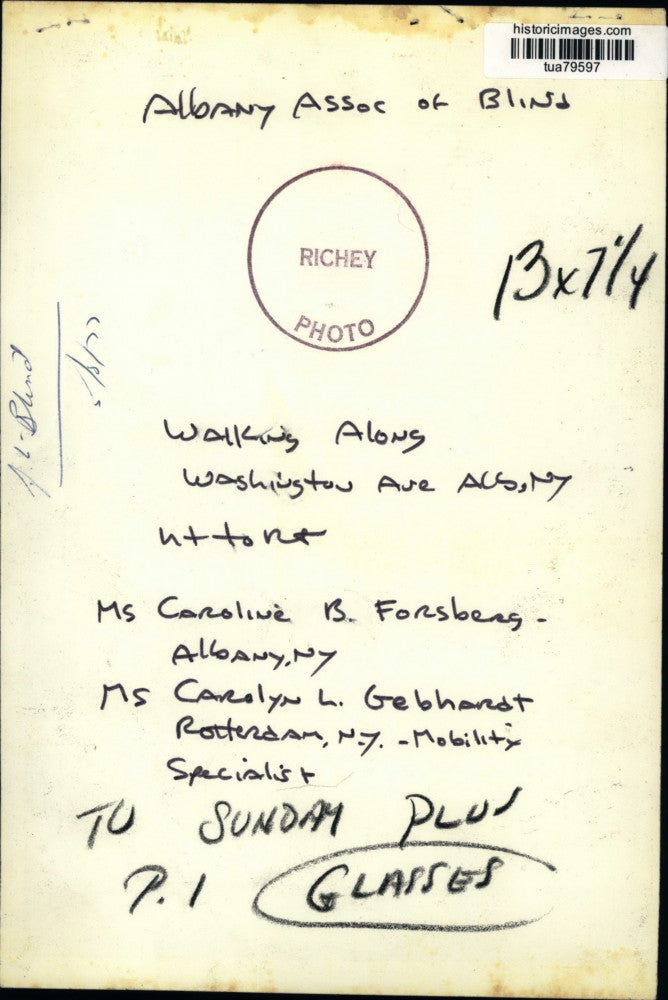 historicimages.com
tua79597
Albany Assoc of Blind
RICHEY
PHOTO
13x7 1/4
Blind
Walking Along
Washington Ave Alb, NY
Lt to Rt
Ms Caroline B. Forsberg -
Albany, NY
Ms Carolyn L. Gebhardt
Rotterdam, N.Y. - Mobility
Specialist
TU SUNDAY PLUS
P. 1 GLASSES